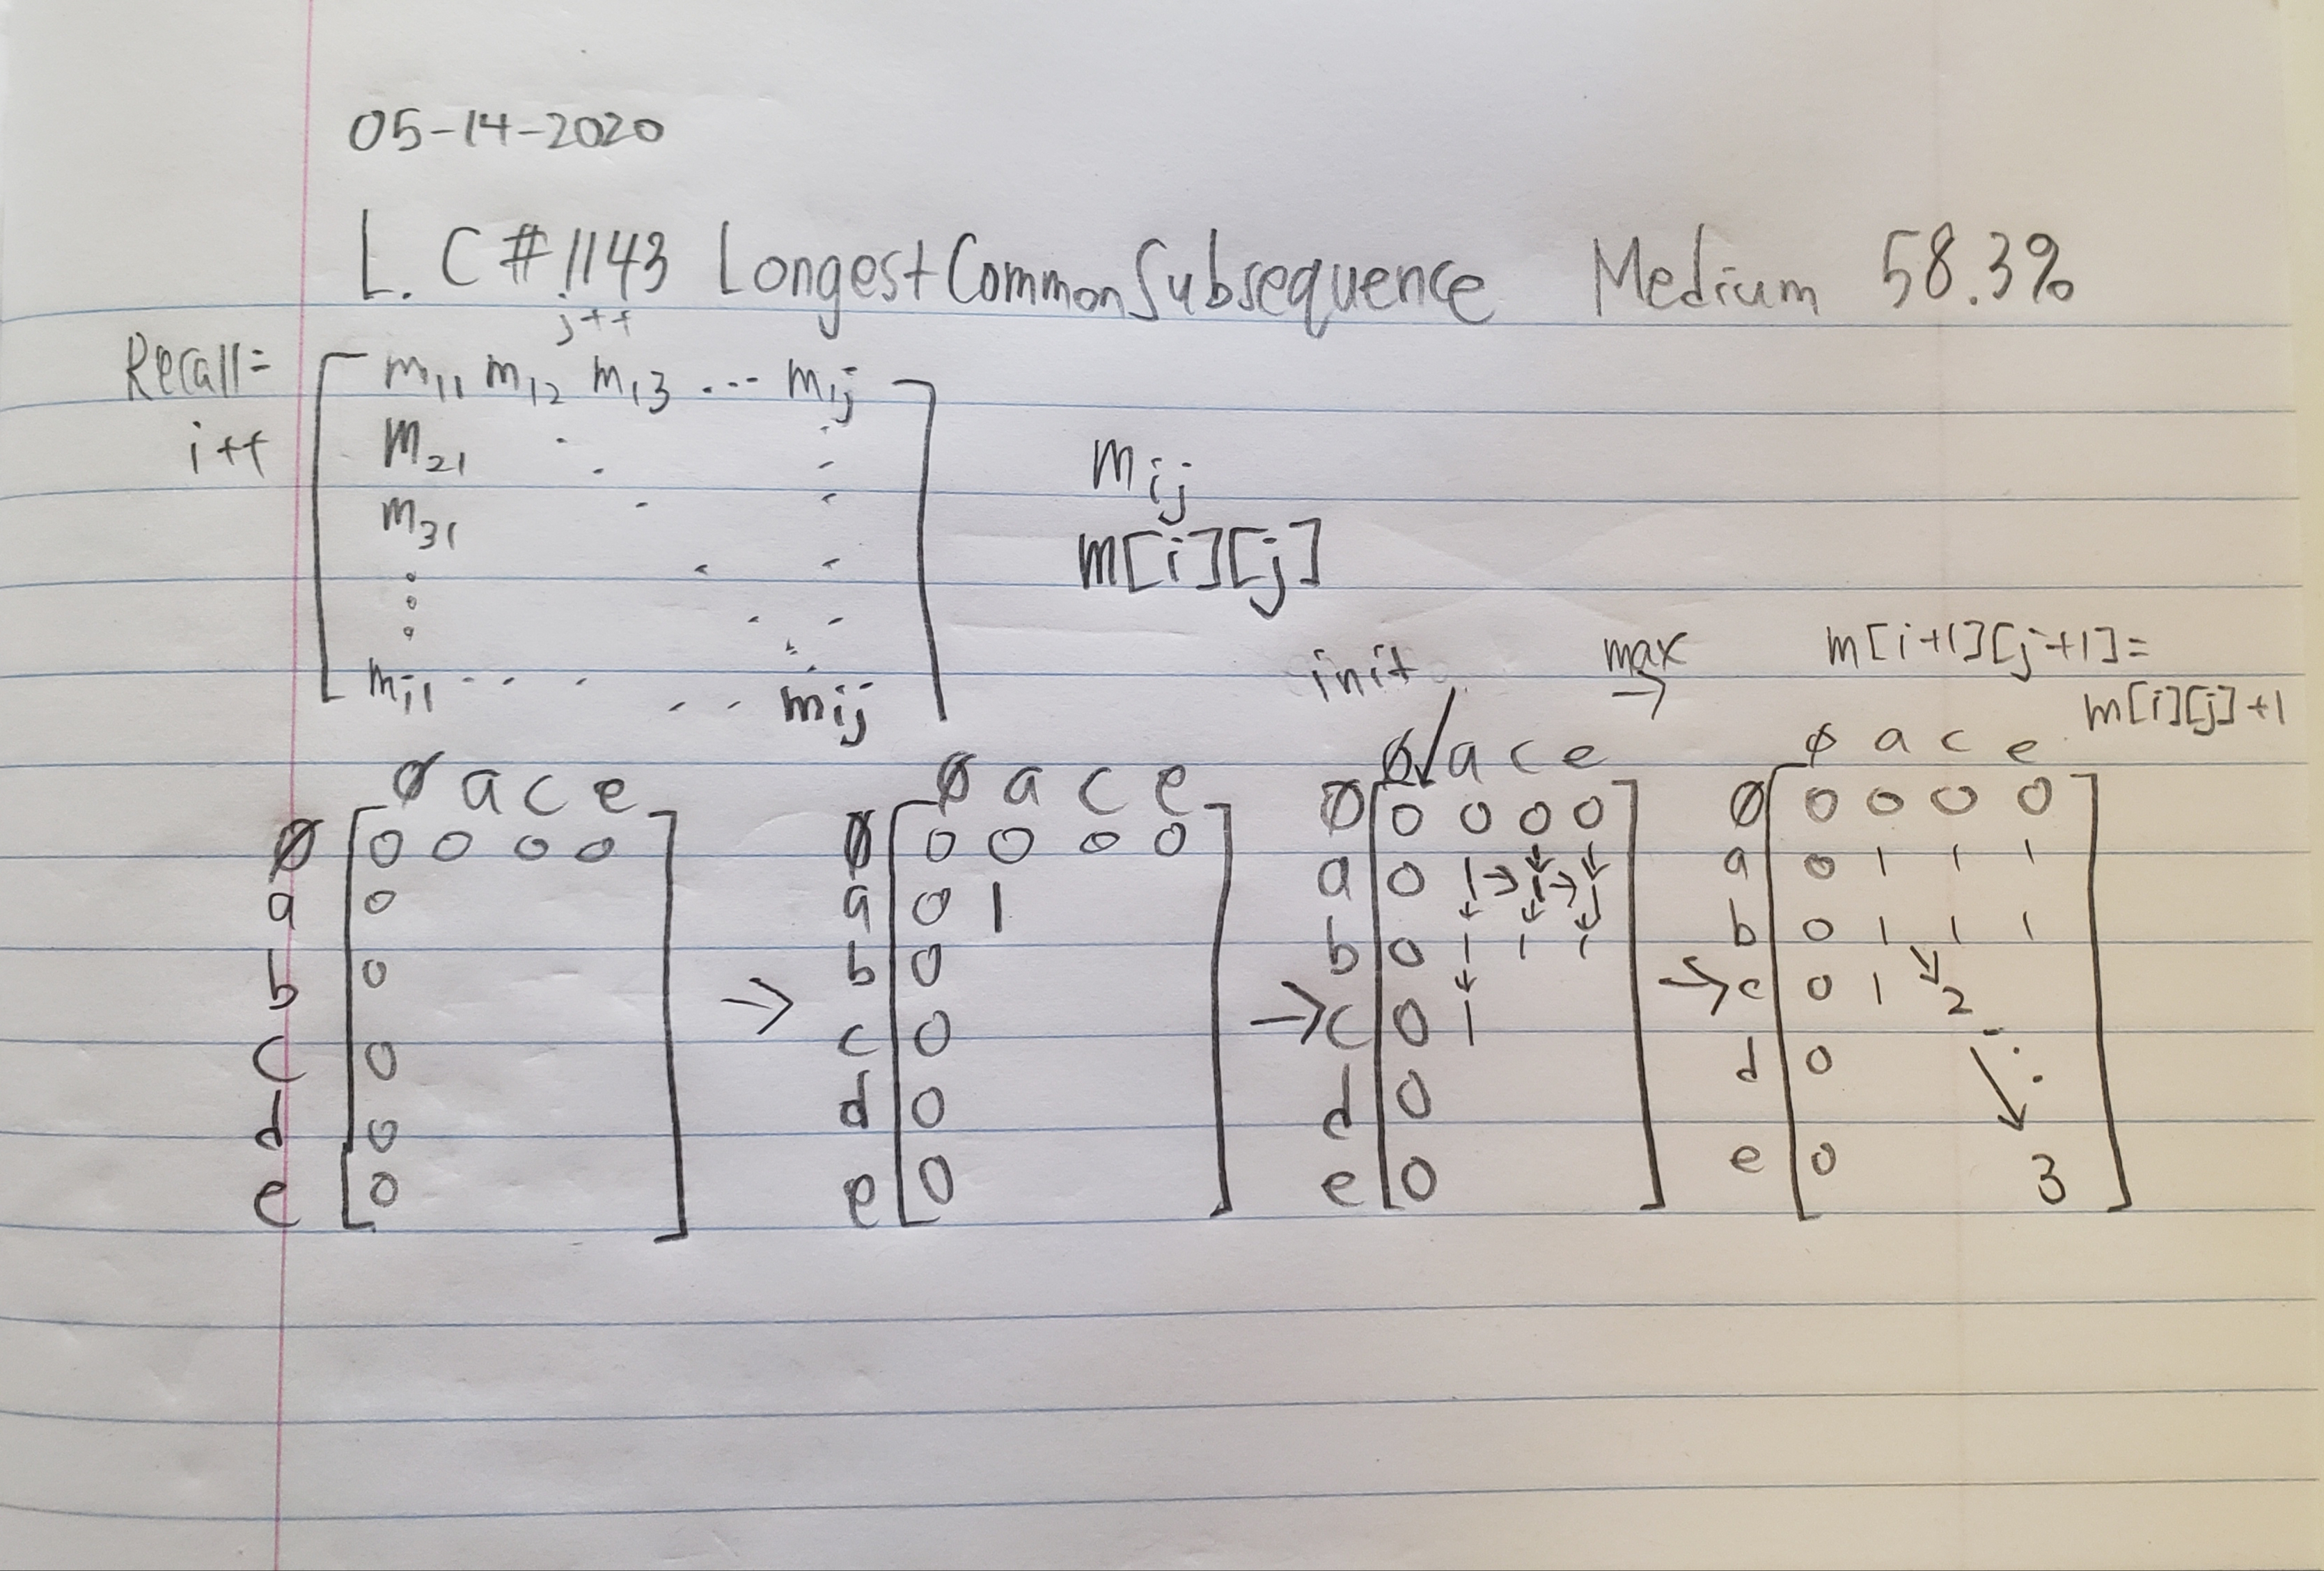 05-14-2020
L. C #1143 Longest Common Subsequence Medium 58.3%
j++
Recall= m11 m12 m13 ... m1j
i++ m21
m31
mi1 ... mij
mij
m[i][j]
init
max →
m[i+1][j+1]=
m[i][j]+1
∅ a c e
∅ 0 0 0 0
a 0
b 0
c 0
d 0
e 0
→
∅ a c e
∅ 0 0 0 0
a 0 1
b 0
c 0
d 0
e 0
→
∅ a c e
∅ 0 0 0 0
a 0 1 → 1 → 1
b 0 1 1 1
c 0 1
d 0
e 0
→
∅ a c e
∅ 0 0 0 0
a 0 1 1 1
b 0 1 1 1
c 0 1 2
d 0
e 0 3